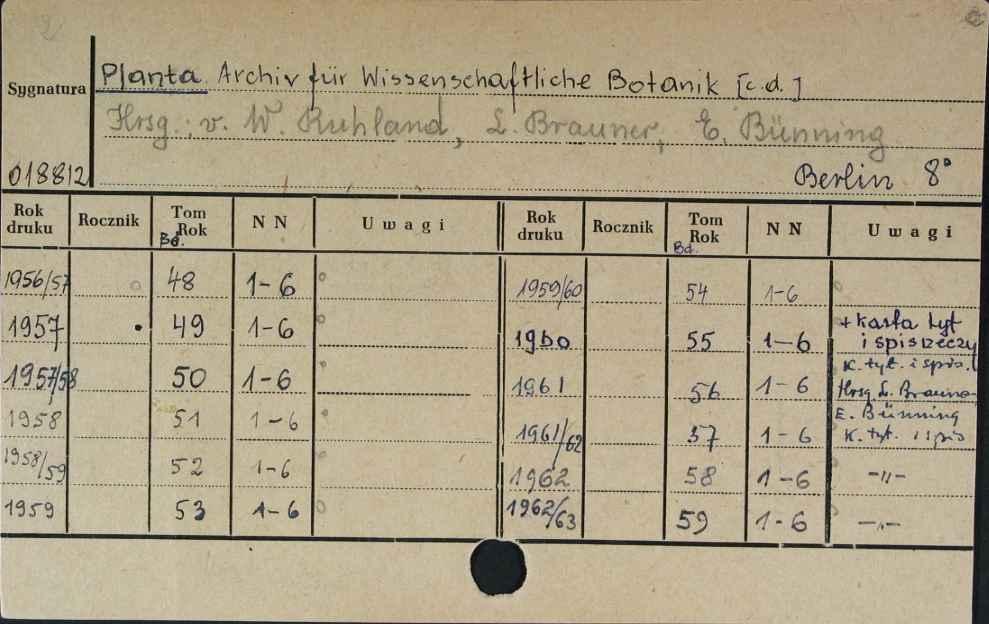 Sygnatura
Planta. Archiv für Wissenschaftliche Botanik [c.d.]
Hrsg. v. W. Ruhland, L. Brauner, E. Bünning
018812
Berlin 8°
Rok druku Rocznik Tom Rok Bd. N N Uwagi Rok druku Rocznik Tom Rok Bd. N N Uwagi
1956/57 48 1-6 1959/60 54 1-6
1957 49 1-6 1960 55 1-6 + Karta tyt i spis rzeczy
1957/58 50 1-6 1961 56 1-6 K. tyt. i spis. Hrsg. L. Brauner
1958 51 1-6 1961/62 57 1-6 E. Bünning K. tyt. i spis
1958/59 52 1-6 1962 58 1-6 -"-
1959 53 1-6 1962/63 59 1-6 -"-